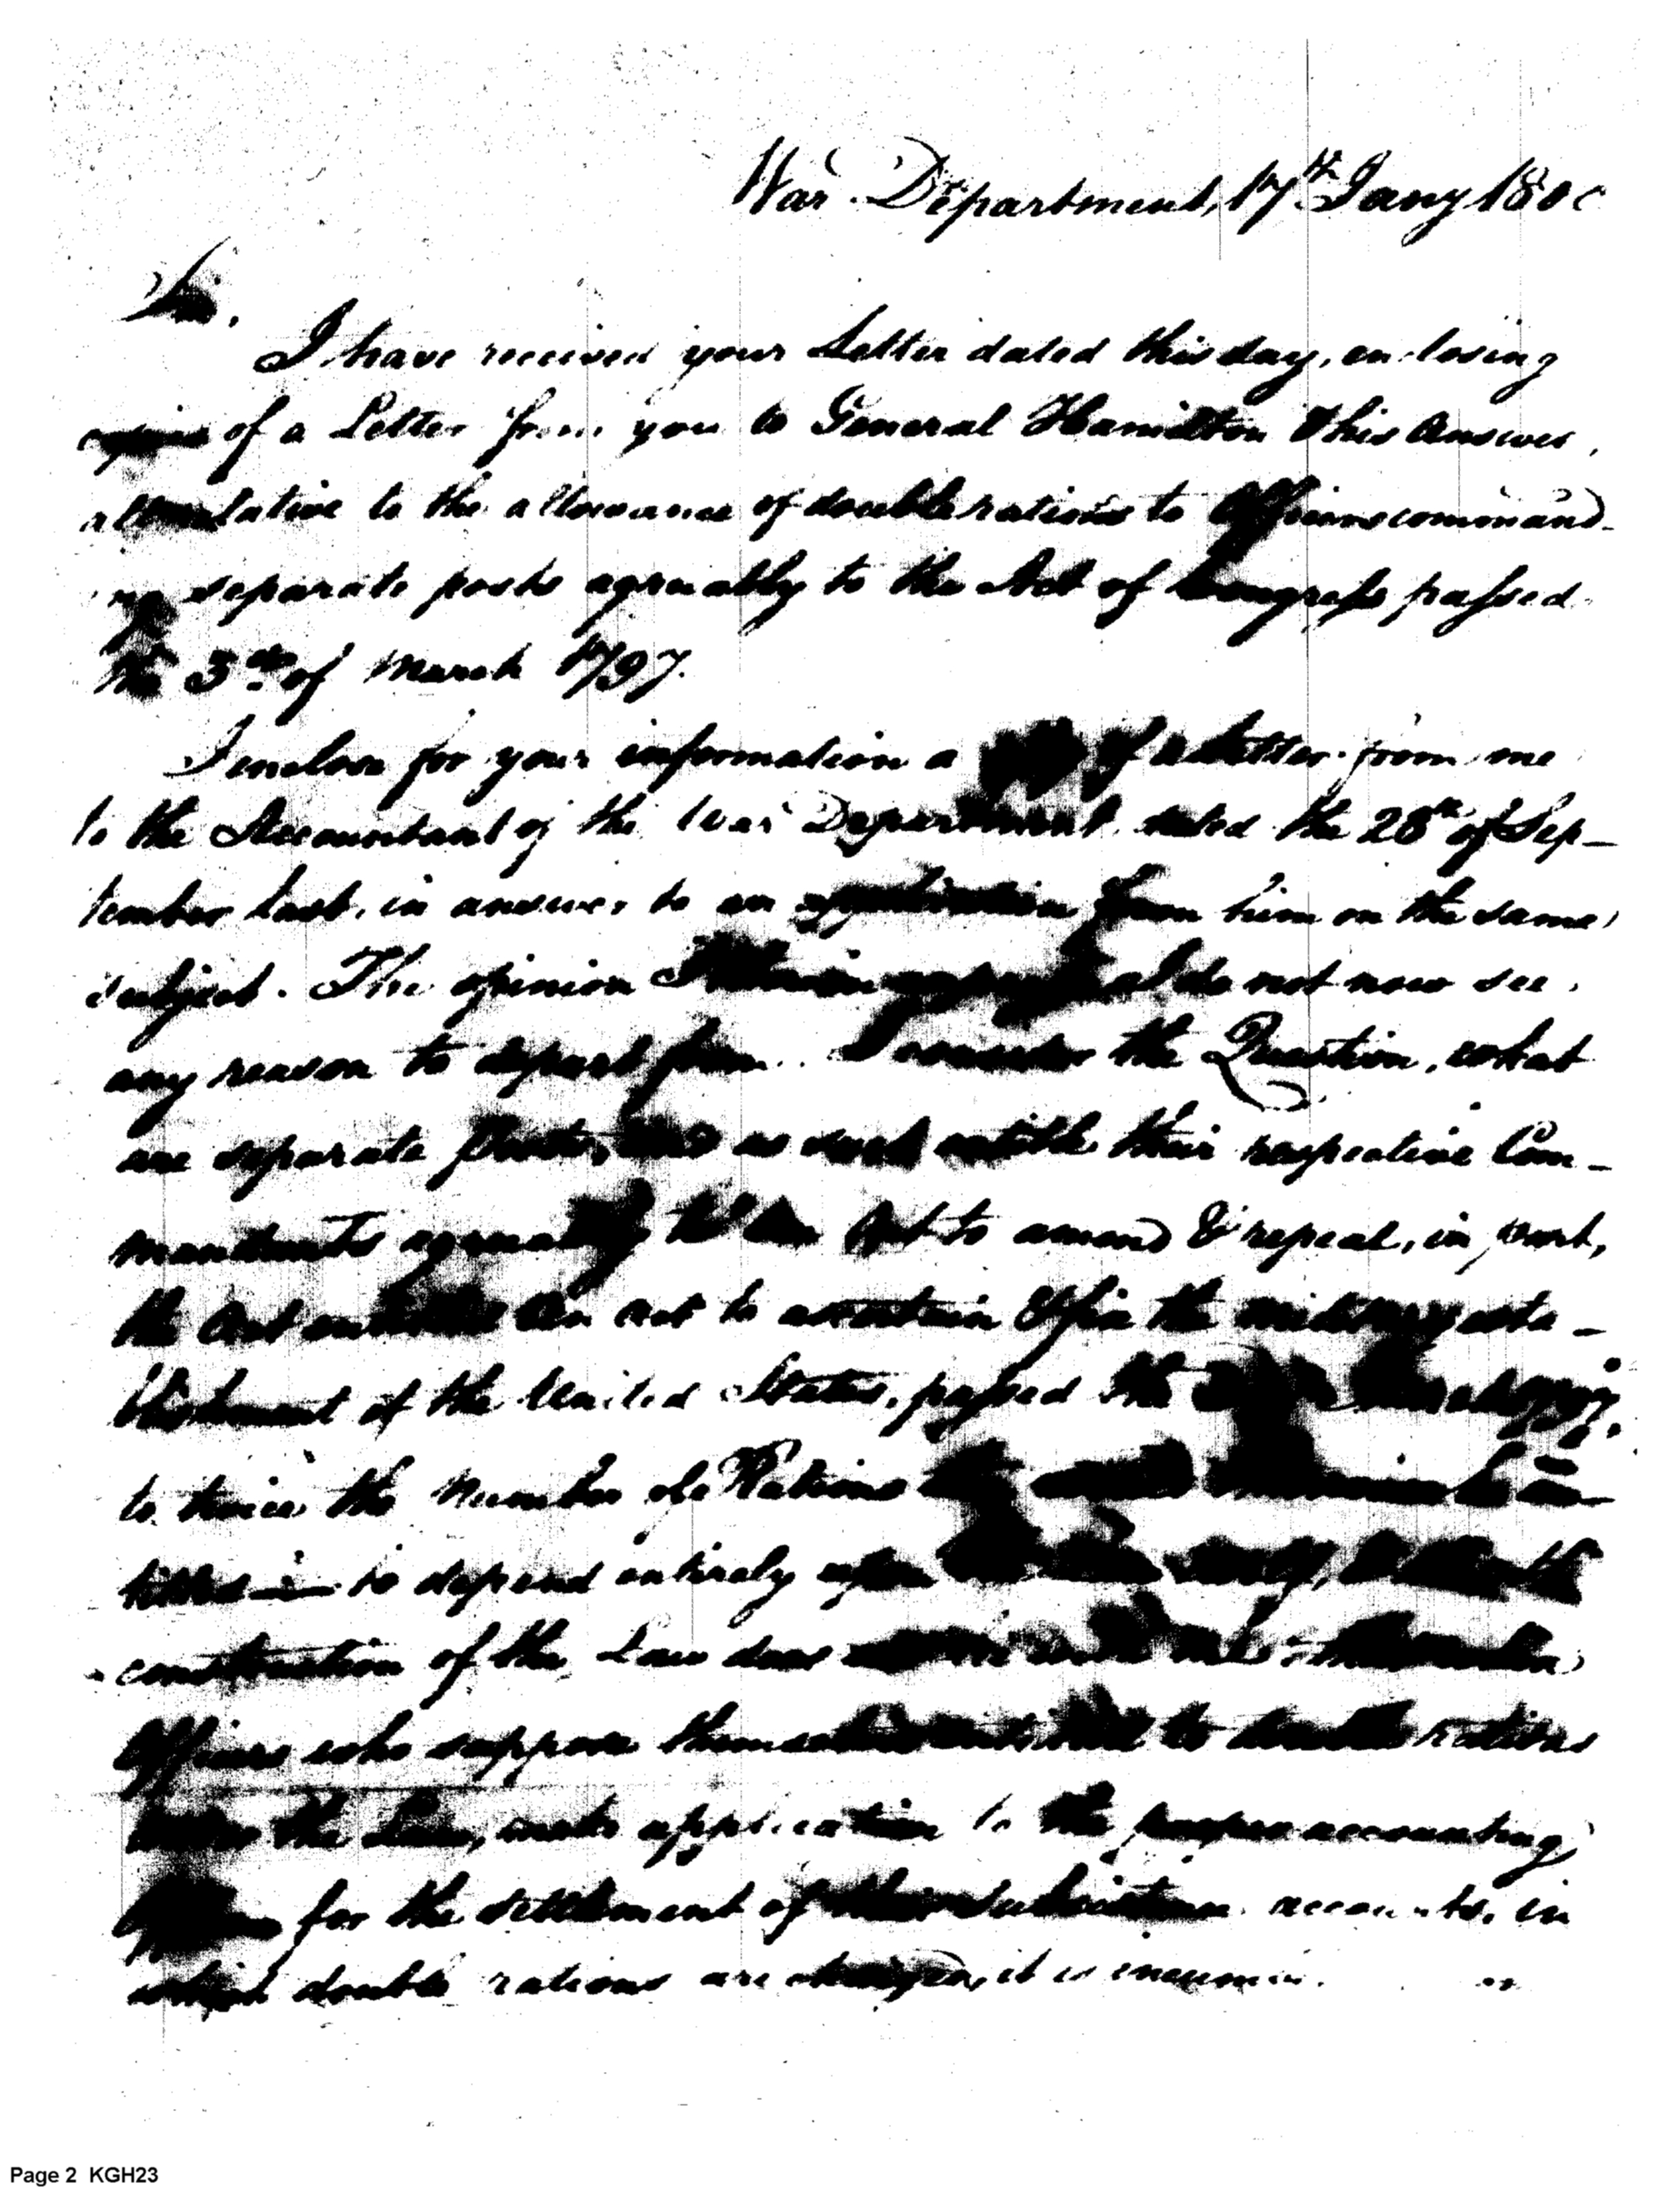 War Department, 17th Jany 1800
Sir.
I have received your Letter dated this day, enclosing
copies of a Letter from you to General Hamilton & his Answer,
all relative to the allowance of double rations to Officers command-
ing separate posts agreeably to the Act of Congress passed
the 3rd of March 1797.
I enclose for your information a copy of a Letter from me
to the Accountant of the War Department dated the 28th of Sep-
tember last, in answer to an application from him on the same
subject. The opinion I therein expressed I do not now see
any reason to depart from. I consider the Question, what
are separate Posts, and as such entitle their respective Com-
mandants agreeably to An Act to amend & repeal, in part,
the Act entitled An Act to ascertain & fix the military esta-
blishment of the United States, passed the March 1797,
to twice the Number of Rations en-
titled to depend entirely upon
construction of the Law does
Officers who suppose themselves entitled to double rations
under the Law, make application to the proper accounting
Officers for the settlement of their subsistence accounts, in
which double rations are charged, it is
Page 2 KGH23